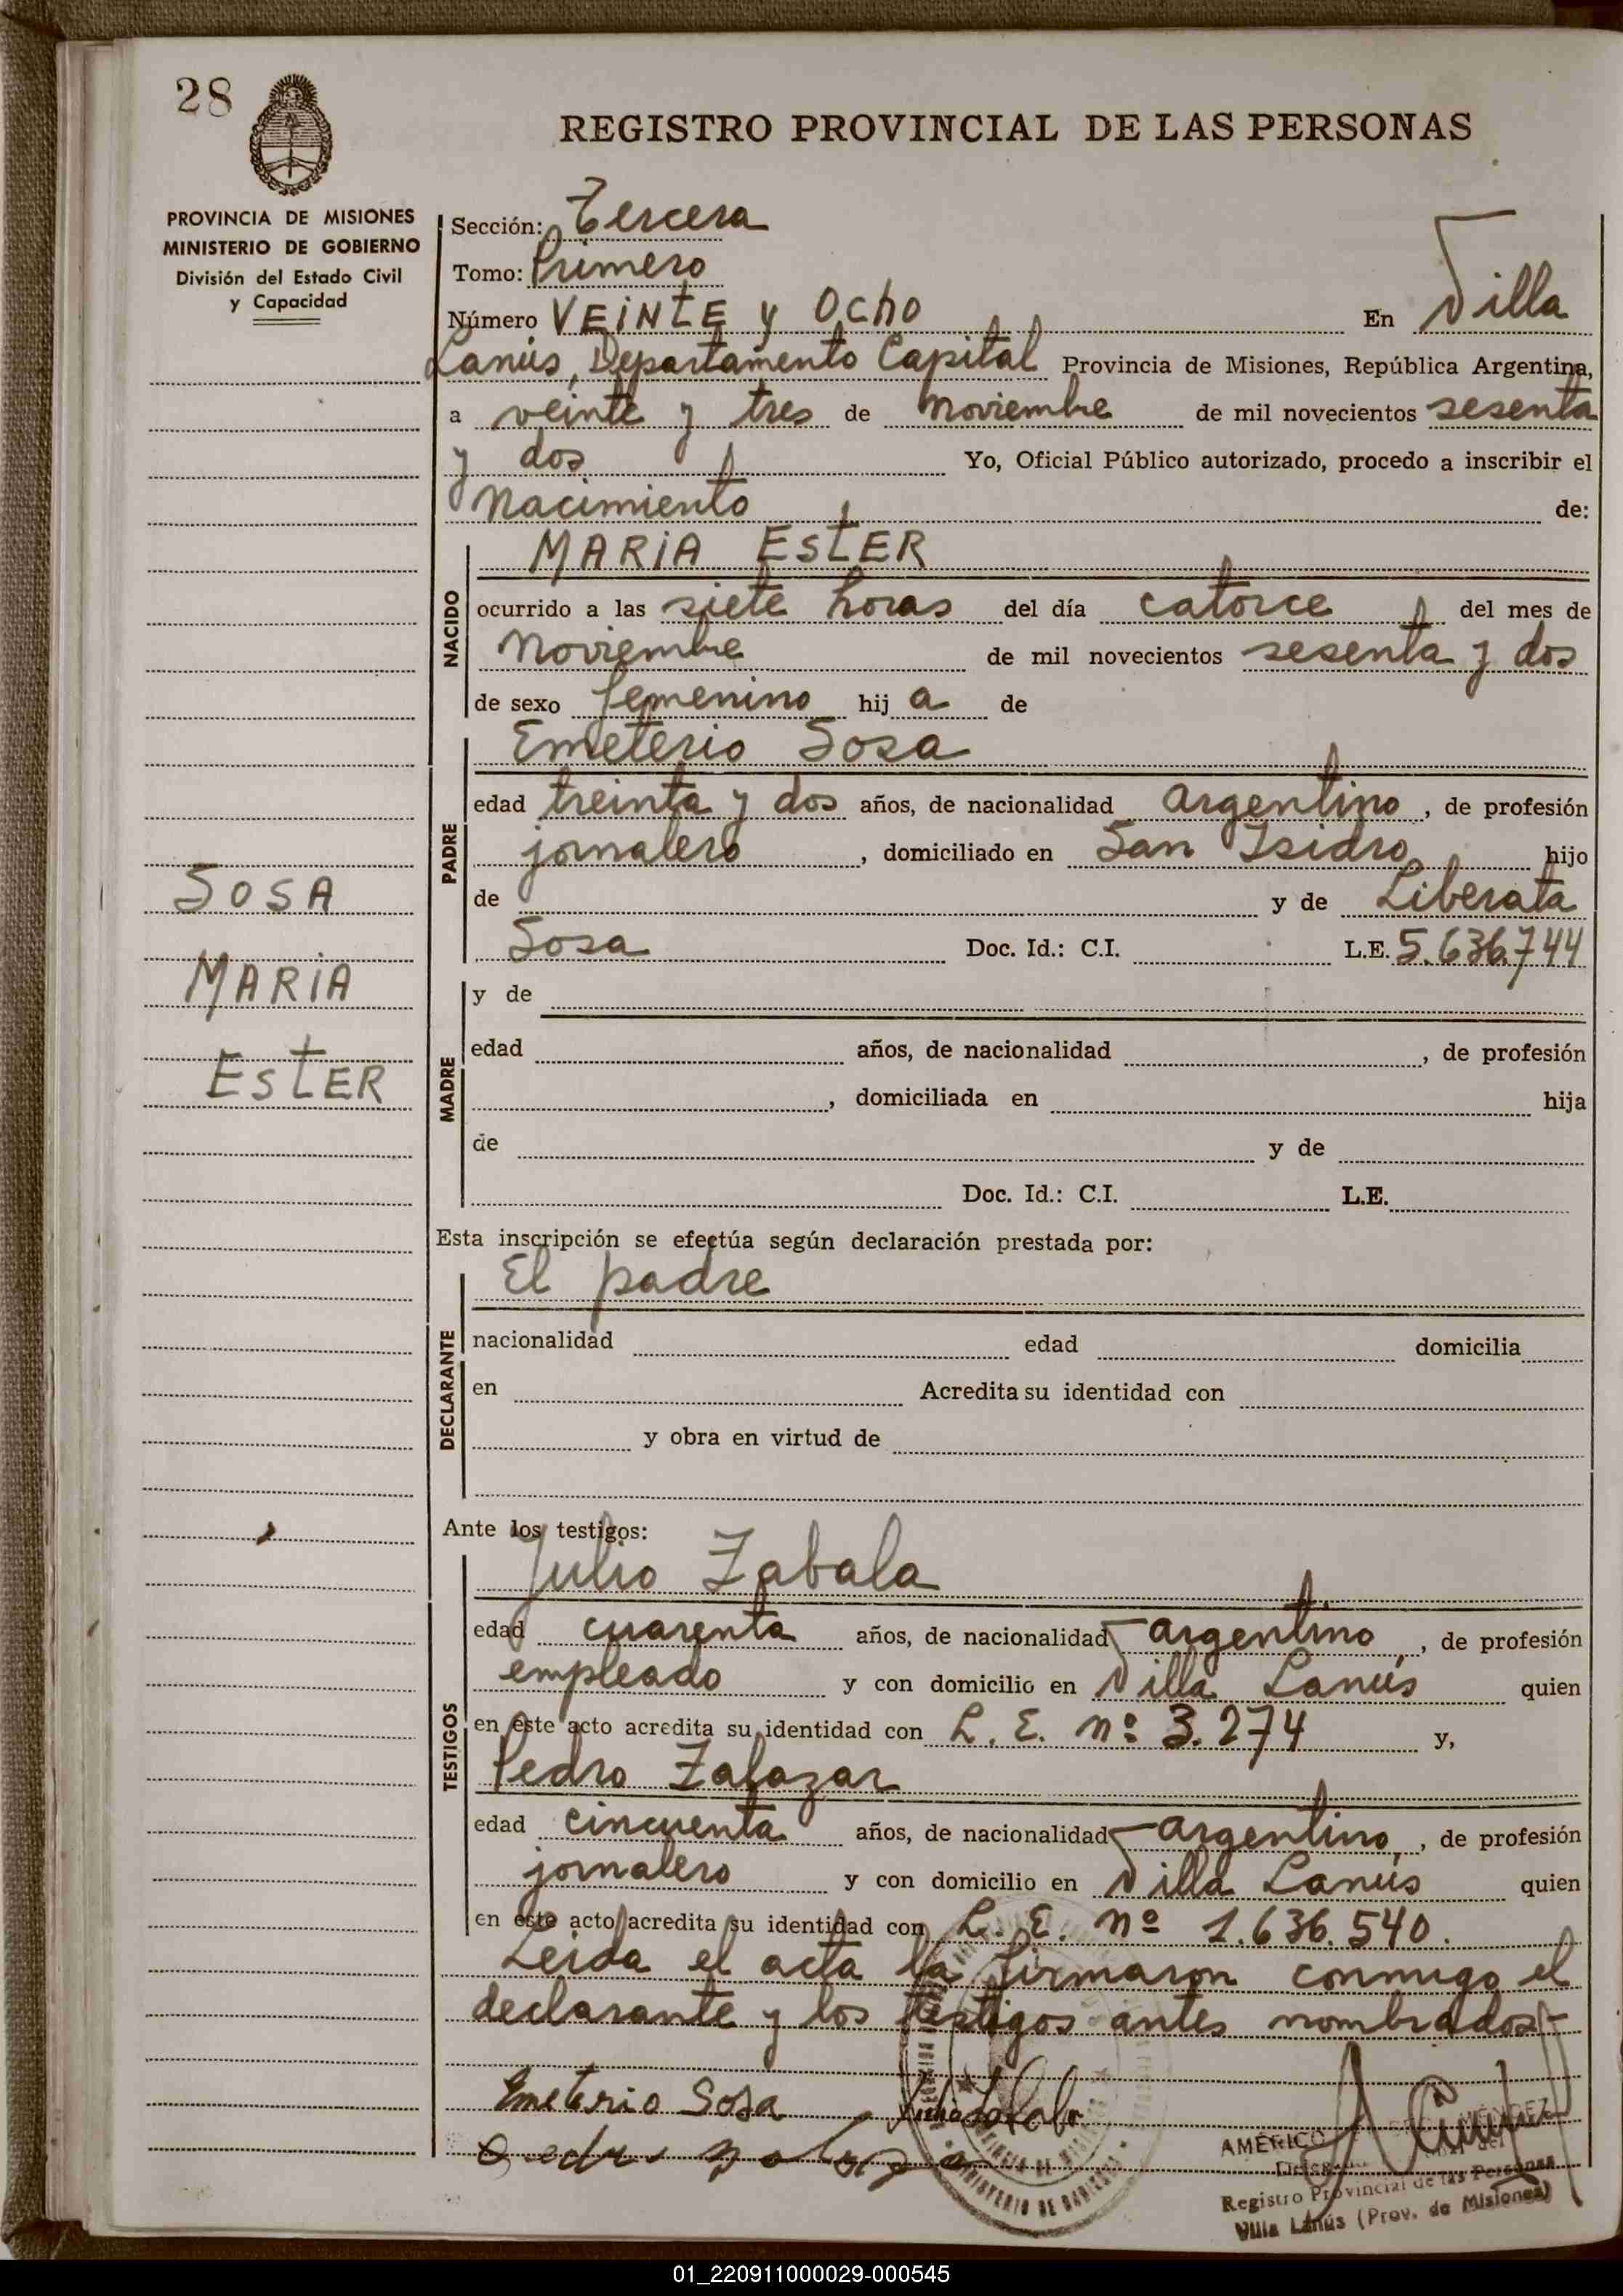 28
REGISTRO PROVINCIAL DE LAS PERSONAS
PROVINCIA DE MISIONES
MINISTERIO DE GOBIERNO
División del Estado Civil
y Capacidad
Sección: Tercera
Tomo: Primero
Número VEINTE y Ocho En Villa
Lanús, Departamento Capital Provincia de Misiones, República Argentina,
a veinte y tres de noviembre de mil novecientos sesenta
y dos Yo, Oficial Público autorizado, procedo a inscribir el
nacimiento de:
NACIDO
MARIA ESTER
ocurrido a las siete horas del día catorce del mes de
noviembre de mil novecientos sesenta y dos
de sexo femenino hij a de
PADRE
Emeterio Sosa
edad treinta y dos años, de nacionalidad argentino, de profesión
jornalero, domiciliado en San Isidro hijo
de y de Liberata
Sosa Doc. Id.: C.I. L.E. 5.636.744
SOSA
MARIA
ESTER
MADRE
y de
edad años, de nacionalidad , de profesión
, domiciliada en hija
de y de
Doc. Id.: C.I. L.E.
Esta inscripción se efectúa según declaración prestada por:
DECLARANTE
El padre
nacionalidad edad domicilia
en Acredita su identidad con
y obra en virtud de
Ante los testigos:
TESTIGOS
Julio Zabala
edad cuarenta años, de nacionalidad argentino, de profesión
empleado y con domicilio en Villa Lanús quien
en este acto acredita su identidad con L. E. nº 3.274 y,
Pedro Zalazar
edad cincuenta años, de nacionalidad argentino, de profesión
jornalero y con domicilio en Villa Lanús quien
en este acto acredita su identidad con L. E. nº 1.636.540.
Leida el acta la firmaron conmigo el
declarante y los testigos antes nombrados-
Emeterio Sosa
AMÉRICO MÉNDEZ
Registro Provincial de las Personas
Villa Lanús (Prov. de Misiones)
01_220911000029-000545